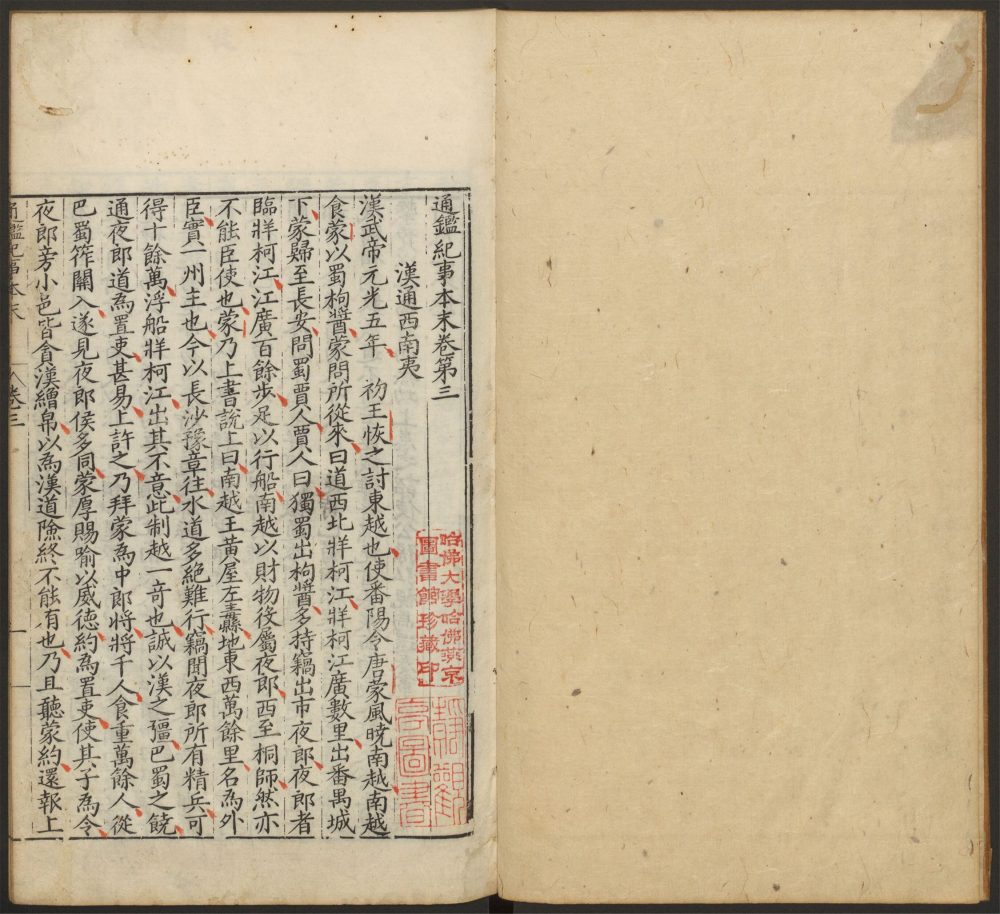 通鑑紀事本末卷第三
漢通西南夷
漢武帝元光五年 初王恢之討東越也使番陽令唐蒙風曉南越南越
食蒙以蜀枸醬蒙問所從來曰道西北牂柯江牂柯江廣數里出番禺城
下蒙歸至長安問蜀賈人賈人曰獨蜀出枸醬多持竊出市夜郎夜郎者
臨牂柯江江廣百餘步足以行船南越以財物役屬夜郎西至桐師然亦
不能臣使也蒙乃上書說上曰南越王黃屋左纛地東西萬餘里名為外
臣實一州主也今以長沙豫章往水道多絕難行竊聞夜郎所有精兵可
得十餘萬浮船牂柯江出其不意此制越一奇也誠以漢之彊巴蜀之饒
通夜郎道為置吏甚易上許之乃拜蒙為中郎將將千人食重萬餘人從
巴蜀筰關入遂見夜郎侯多同蒙厚賜喻以威德約為置吏使其子為令
夜郎旁小邑皆貪漢繒帛以為漢道險終不能有也乃且聽蒙約還報上
通鑑紀事本末 卷三 一
哈佛大學哈佛燕京
圖書館珍藏印
圖書